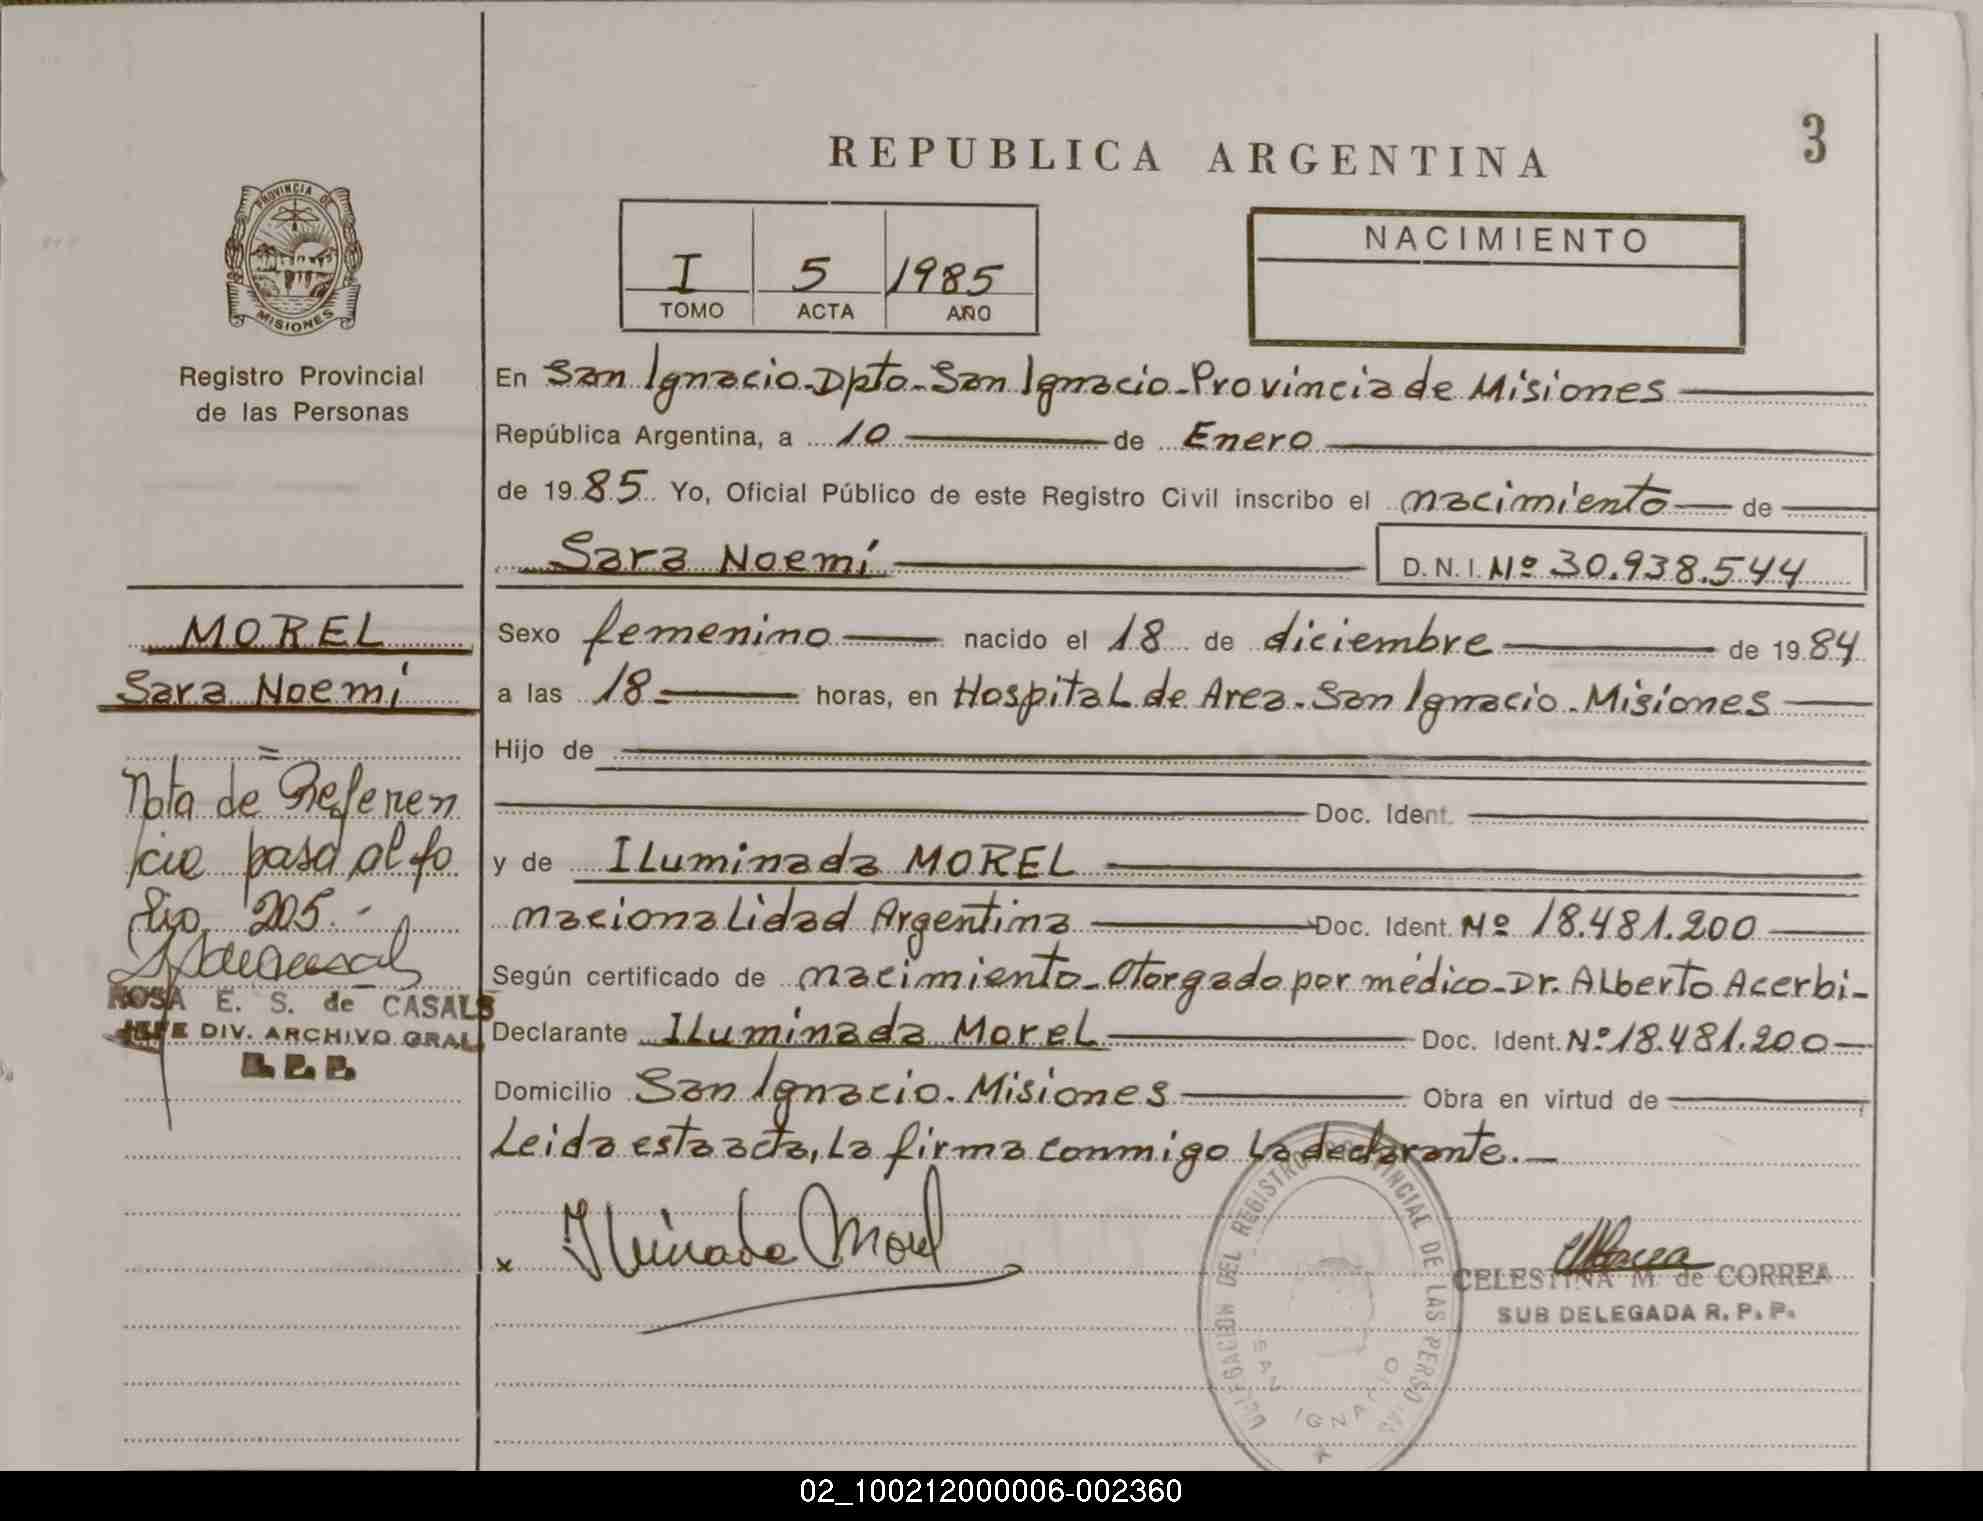 REPUBLICA ARGENTINA
3
PROVINCIA DE
MISIONES
Registro Provincial
de las Personas
I 5 1985
TOMO ACTA AÑO
NACIMIENTO
En San Ignacio-Dpto-San Ignacio-Provincia de Misiones
República Argentina, a 10 de Enero
de 1985 Yo, Oficial Público de este Registro Civil inscribo el nacimiento de
Sara Noemí
D.N.I. Nº 30.938.544
Sexo femenino nacido el 18 de diciembre de 1984
a las 18 horas, en Hospital de Area-San Ignacio-Misiones
Hijo de
Doc. Ident.
y de Iluminada MOREL
nacionalidad Argentina Doc. Ident. Nº 18.481.200
Según certificado de nacimiento-Otorgado por médico-Dr. Alberto Acerbi-
Declarante Iluminada Morel Doc. Ident. Nº 18.481.200
Domicilio San Ignacio-Misiones Obra en virtud de
Leida esta acta, la firma conmigo la declarante.-
x Iluminada Morel
CELESTINA M. de CORREA
SUB DELEGADA R. P. P.
DELEGACION DEL REGISTRO PROVINCIAL DE LAS PERSONAS
SAN IGNACIO
MOREL
Sara Noemí
=
Nota de Referen
cia pasa al fo
lio 205.-
ROSA E. S. de CASALS
JEFE DIV. ARCHIVO GRAL
R. P. P.
02_100212000006-002360